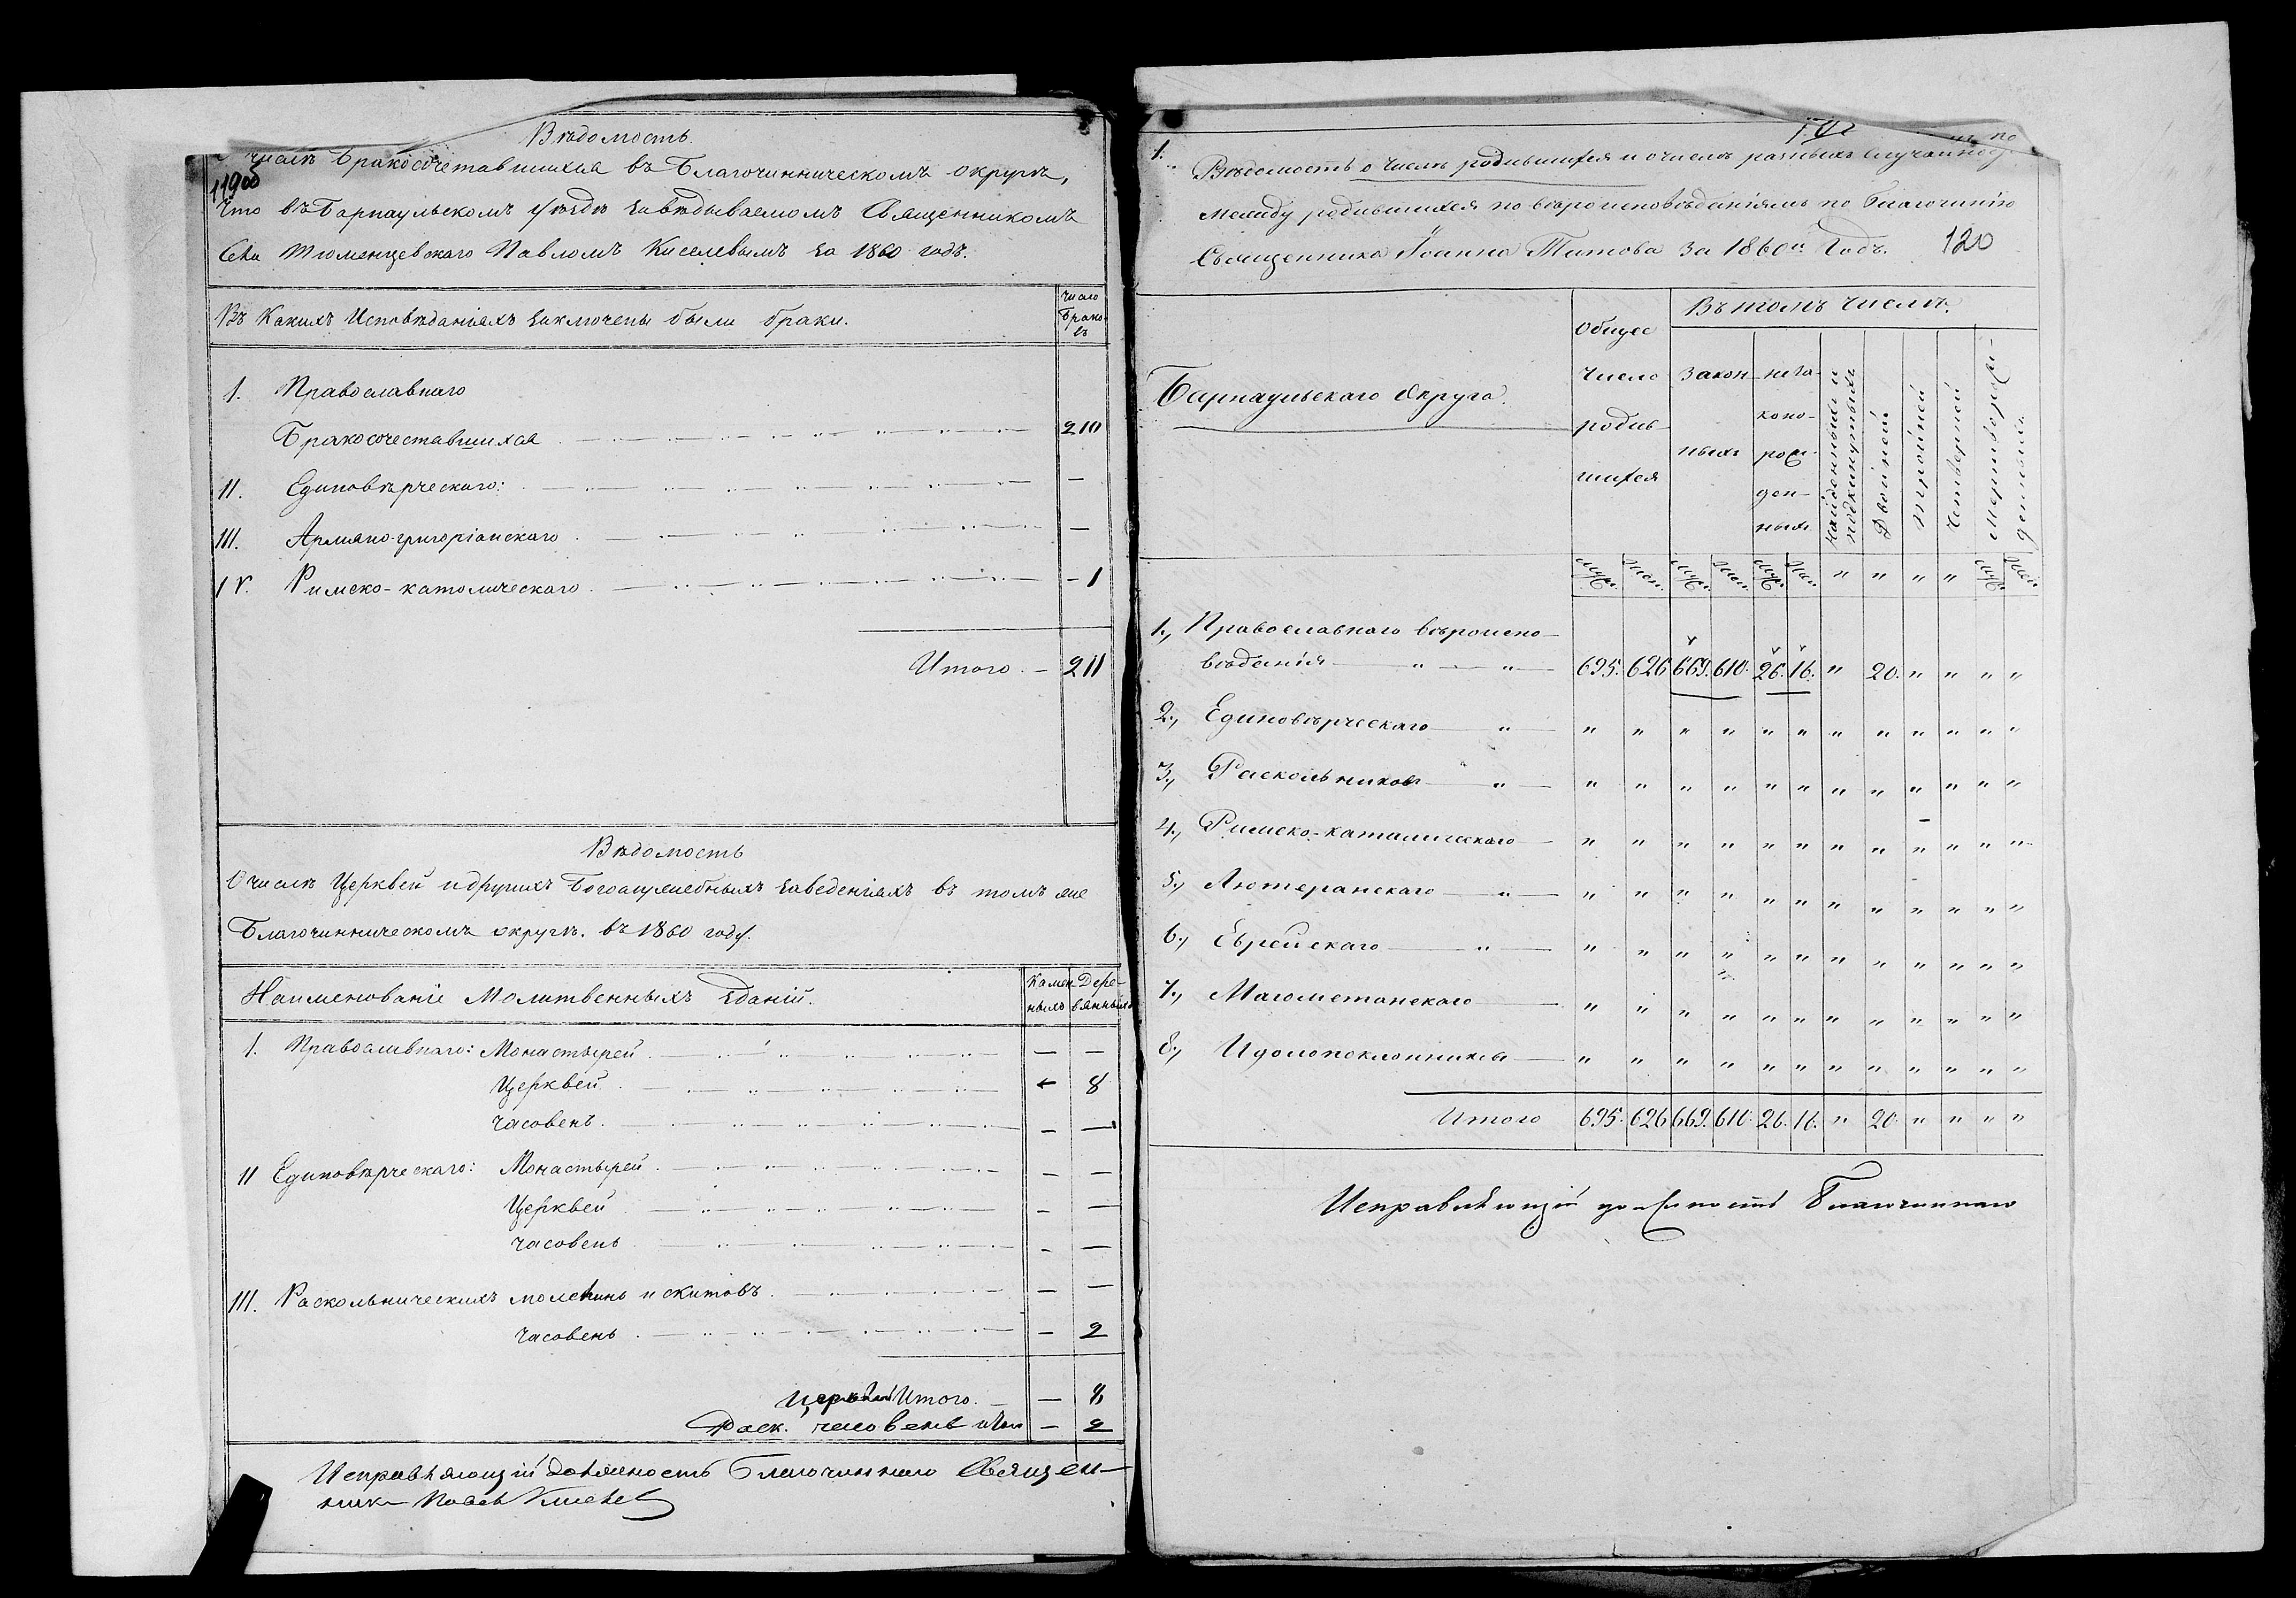 Вѣдомость
числѣ бракосочетавшихся въ Благочинническомъ округѣ,
119об
что въ Барнаульскомъ уѣздѣ завѣдываемомъ Священникомъ
Села Тюменцевскаго Павломъ Киселевымъ за 1860 годъ.
Въ Какихъ Исповѣданіяхъ заключены были браки.
Число Брако въ
I. Православнаго
Бракосочетавшихся 210
II. Единовѣрческаго: —
III. Армяно-григоріанскаго —
IV. Римско-католическаго 1
Итого 211
Вѣдомость
О числѣ Церквей и другихъ Богослужебныхъ заведеніяхъ въ томъ же
Благочинническомъ округѣ. въ 1860 году.
Наименованіе Молитвенныхъ Зданій.
Камен-ныхъ Дере-вянныхъ
I. Православнаго: Монастырей — —
Церквей — 8
часовень — —
II Единовѣрческаго: Монастырей — —
Церквей — —
часовень — —
III. Раскольническихъ молеленъ и скитовъ — —
часовень — 2
Церквей Итого — 8
Раск. часовень — 2
Исправляющій должность Благочиннаго Священ-
никъ Павелъ Киселев
1.
Вѣдомость о числѣ родившихся и о числѣ разныхъ случаевъ
между родившимися по вѣроисповѣданіямъ по благочинію
Священника Іоанна Титова за 1860й Годъ. 120
Барнаульскаго Округа.
Общее число родив-шихся
Въ томъ числѣ
Закон-ныхъ
неза-коно-рож-ден-ныхъ
Найденныхъ и подкинутыхъ
Двойней
тройней
четверней
мертворож-денныхъ
муж. жен. муж. жен. муж. жен. " " " " муж. жен.
1., Православнаго вѣроиспо-
вѣданія 695. 626 669. 610. 26. 16. " 20. " " " "
2., Единовѣрческаго " " " " " " " " " " " "
3., Раскольниковъ " " " " " " " " " " " "
4., Римско-каталическаго " " " " " " " " " " " "
5., Лютеранскаго " " " " " " " " " " " "
6., Еврейскаго " " " " " " " " " " " "
7., Магометанскаго " " " " " " " " " " " "
8., Идолопоклонниковъ " " " " " " " " " " " "
Итого 695. 626 669. 610. 26. 16. " 20. " " " "
Исправляющій должность Благочиннаго